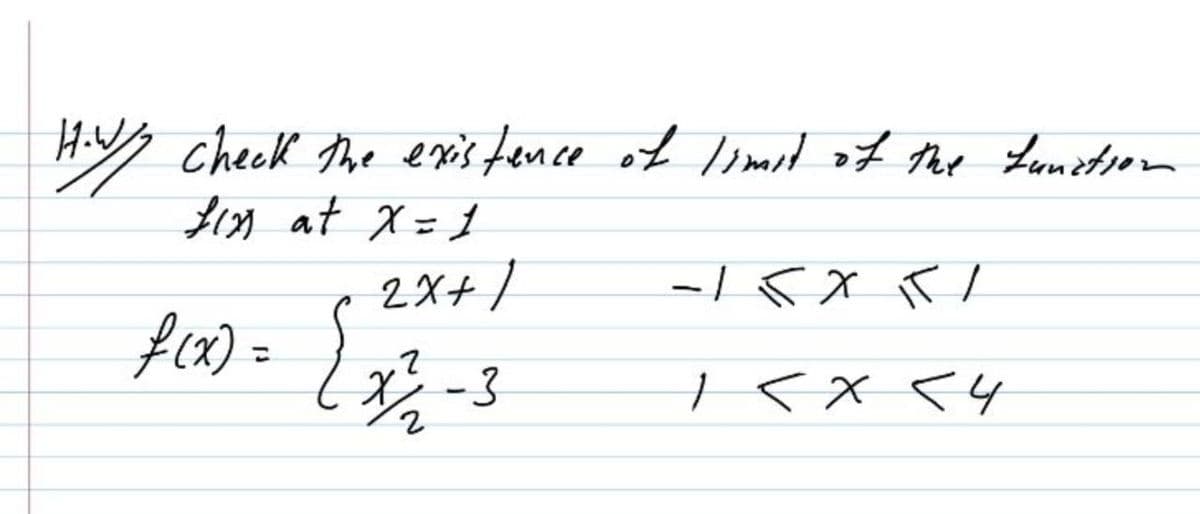 H.W// check the existence of limit of the function
f(x) at x = 1
2x+1 -1 ≤ x ≤ 1
f(x) = {
x²/2 - 3 1 < x < 4